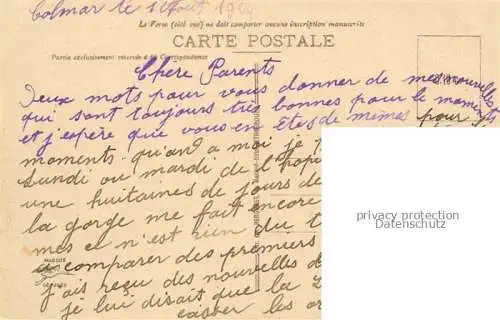 Colmar le 1 Août 19
Le Recto (côté vue) ne doit comporter aucune inscription manuscrite
CARTE POSTALE
Partie exclusivement réservée à la Correspondance
Chere Parents
Deux mots pour vous donner de mes nouvelles
qui sont toujours très bonnes pour le moment
et j'espère que vous en êtes de mêmes pour
moments. qu'an a moi je
Lundi ou mardi de l'
une huitaines de jours de
la gorge me fait encore
mes ce n'est rien du t
comparer des premiers
MARQUE
j'ais reçu des nouvelles d
je lui disait que la
casser les
privacy protection
Datenschutz